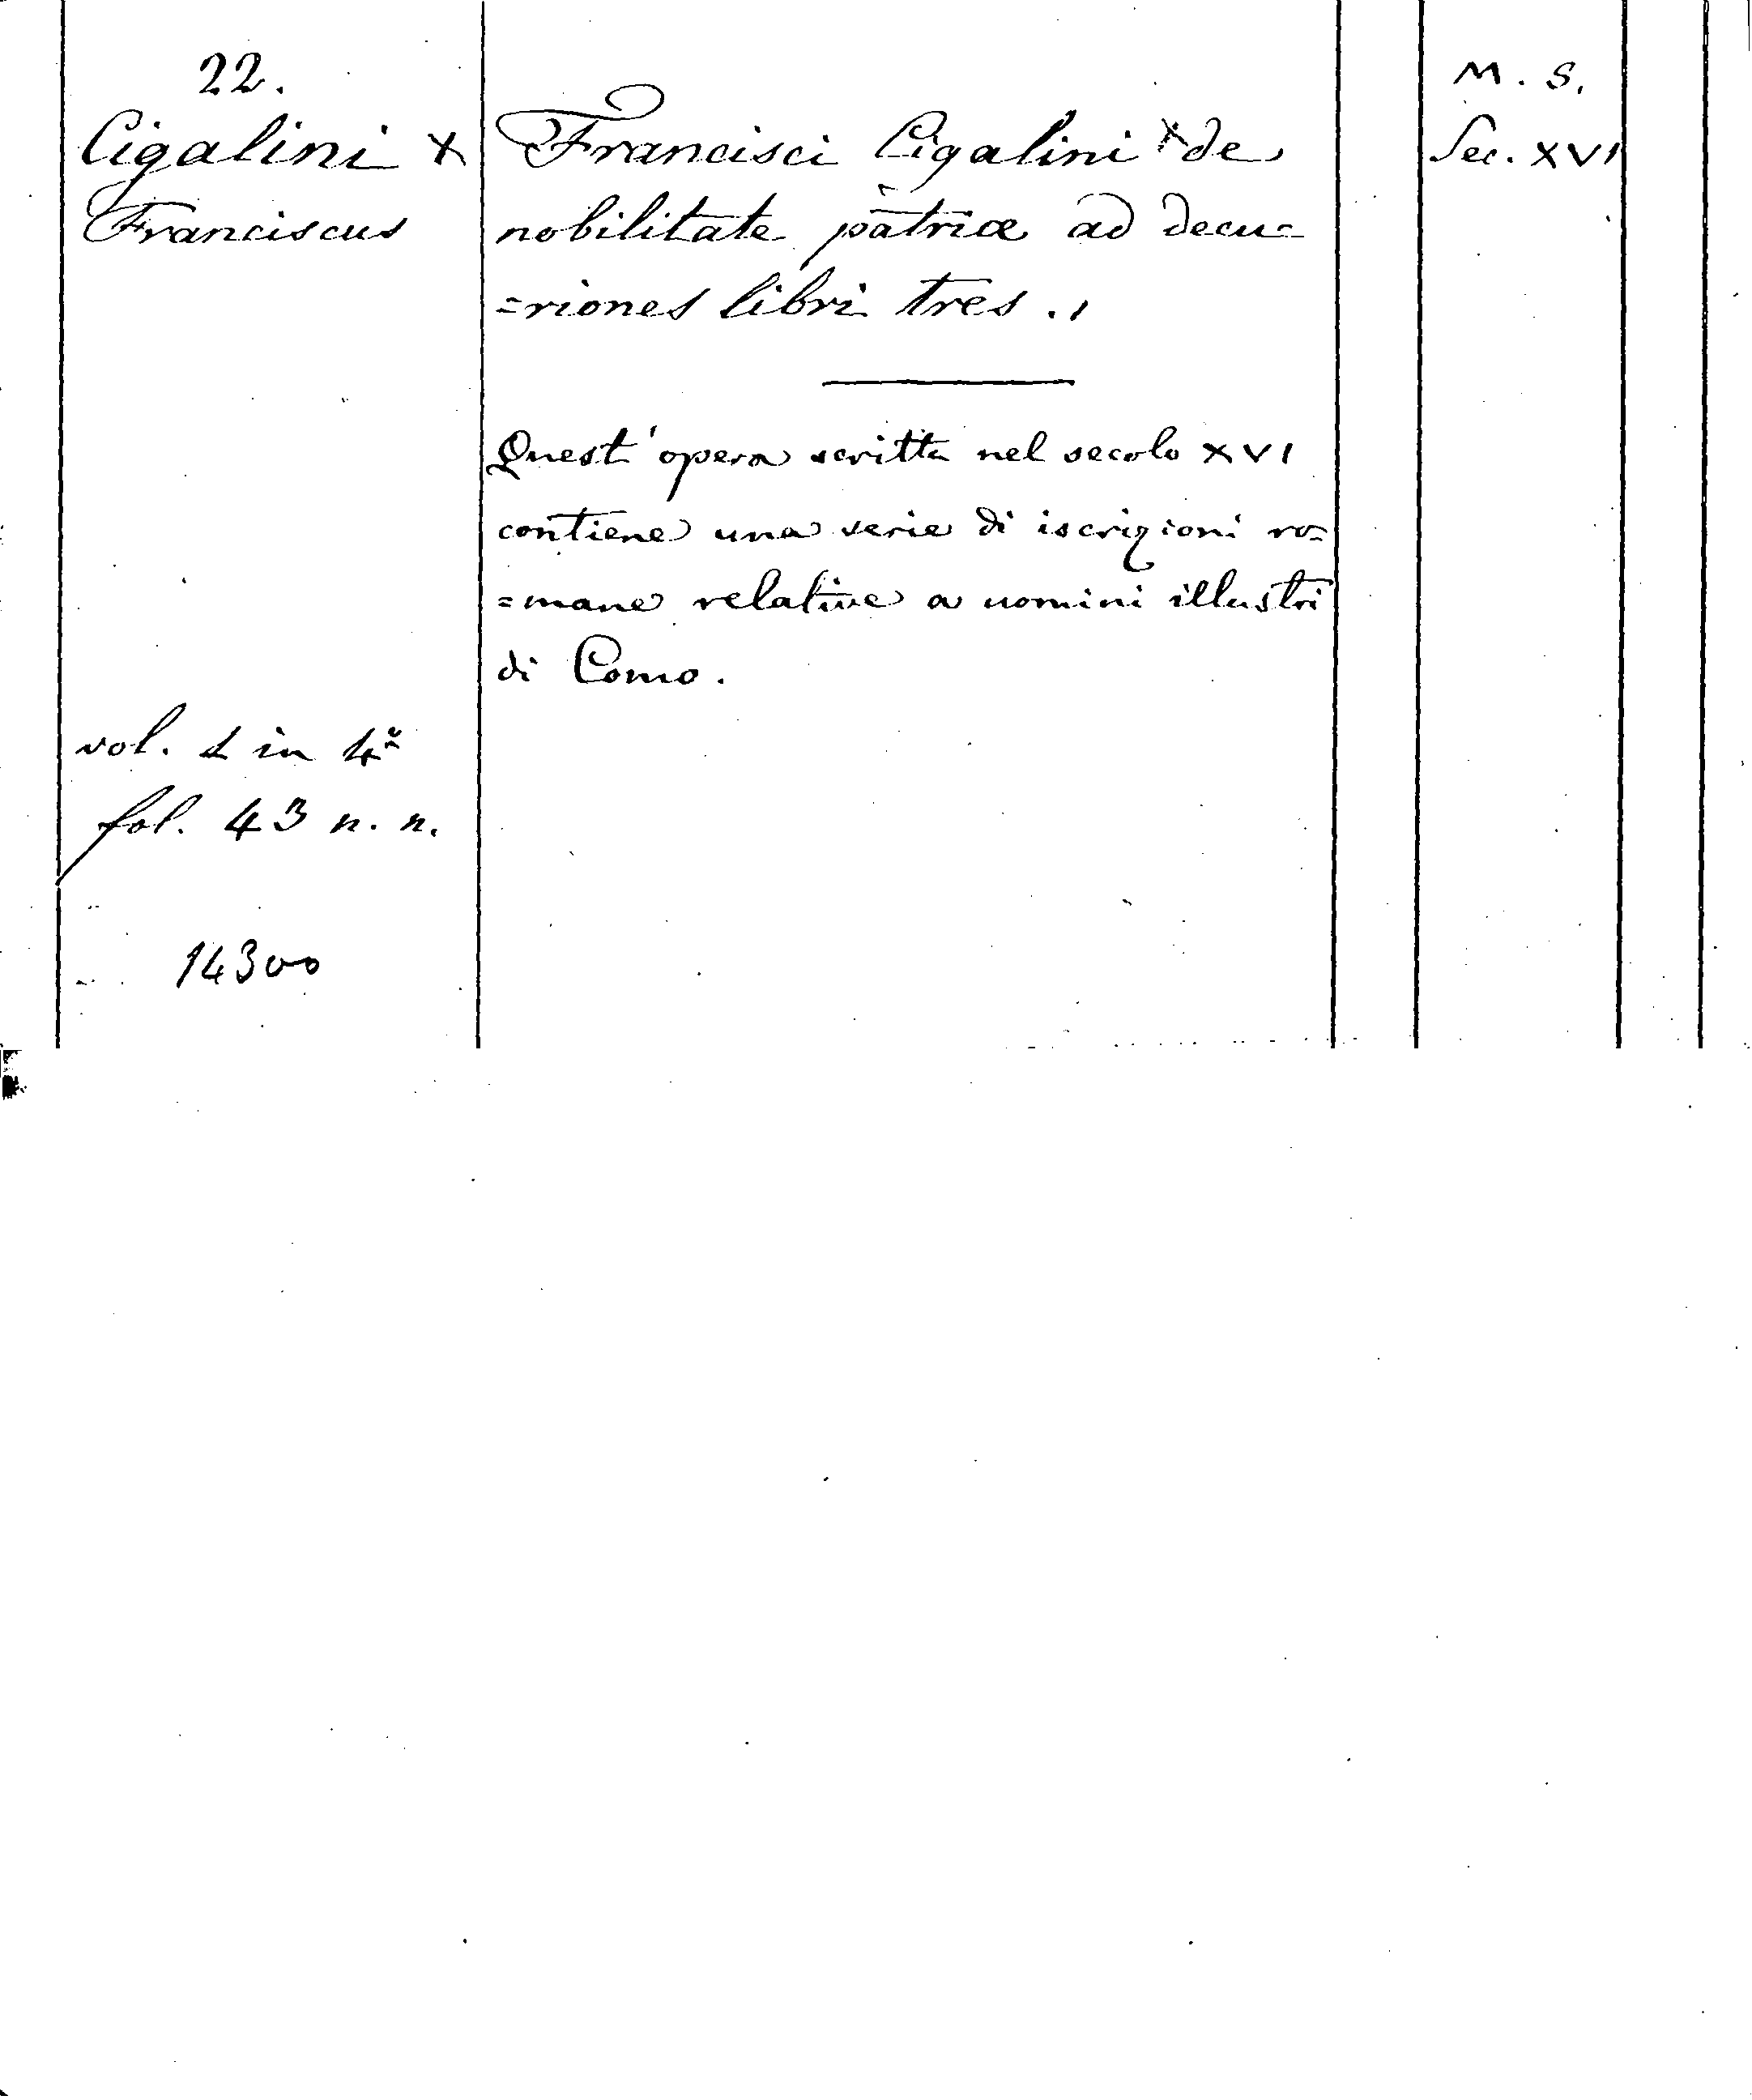 22.
Cigalini x
Franciscus
vol. 1 in 4º
fol. 43 n. n.
14300
Francisci Cigalini x de
nobilitate patriæ ad decu=
=riones libri tres .,
Quest' opera scritta nel secolo XVI
contiene una serie di iscrizioni ro=
=mane relative a uomini illustri
di Como.
M. S.
Sec. XVI